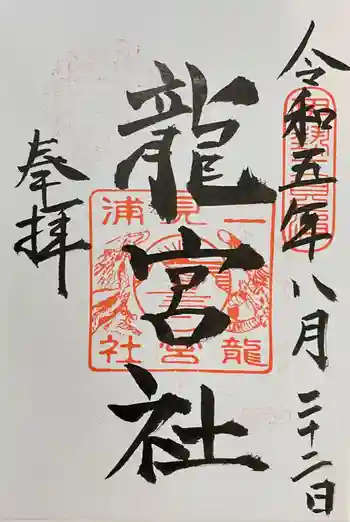 令和五年八月二十二日
龍宮社
奉拝
二見
浦
龍宮
社